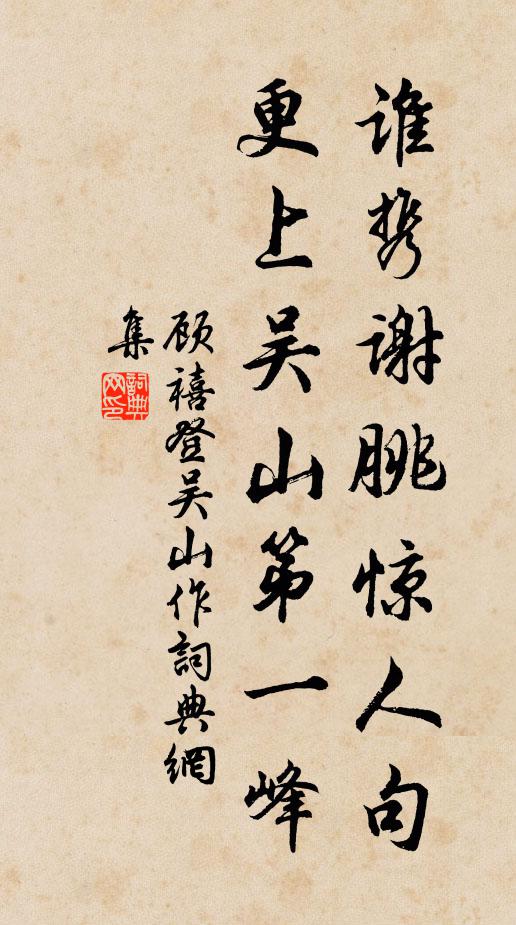 谁携谢朓惊人句
更上吴山第一峰
顾禧登吴山作詞典網
集
詞典
网印